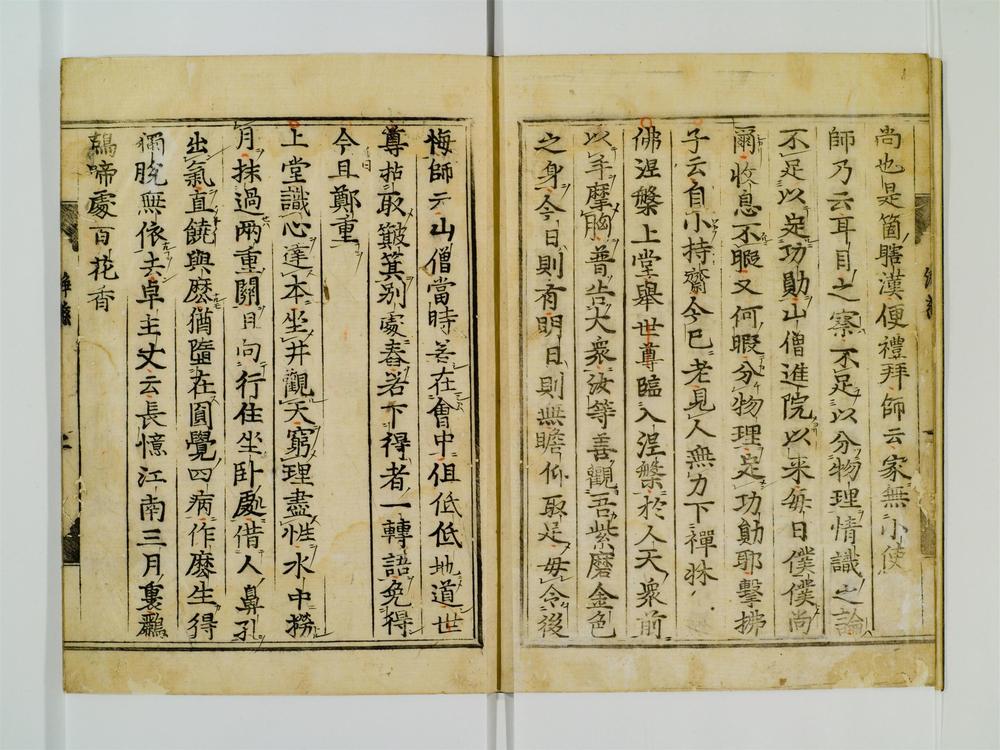 尚也是箇瞎漢便禮拜師云家無小使
師乃云耳目之察不足以分物理情識之論
不足以定功勛山僧進院以來每日僕僕尚
爾收息不暇又何暇分物理定功勛耶擊拂
子云自小持齋今已老見人無力下禪牀
佛涅槃上堂舉世尊臨入涅槃於人天衆前
以手摩胸普告大衆汝等善觀吾紫磨金色
之身今日則有明日則無瞻仰取足毋令後
悔師云山僧當時若在會中但低低地道世
尊拈取簸箕別處舂若下得者一轉語免得
今日鄭重
上堂識心達本坐井觀天窮理盡性水中撈
月抹過兩重關日向行住坐臥處借人鼻孔
出氣直饒與麼猶墮在圓覺四病作麼生得
獨脫無依去卓主丈云長憶江南三月裏鷓
鴣啼處百花香